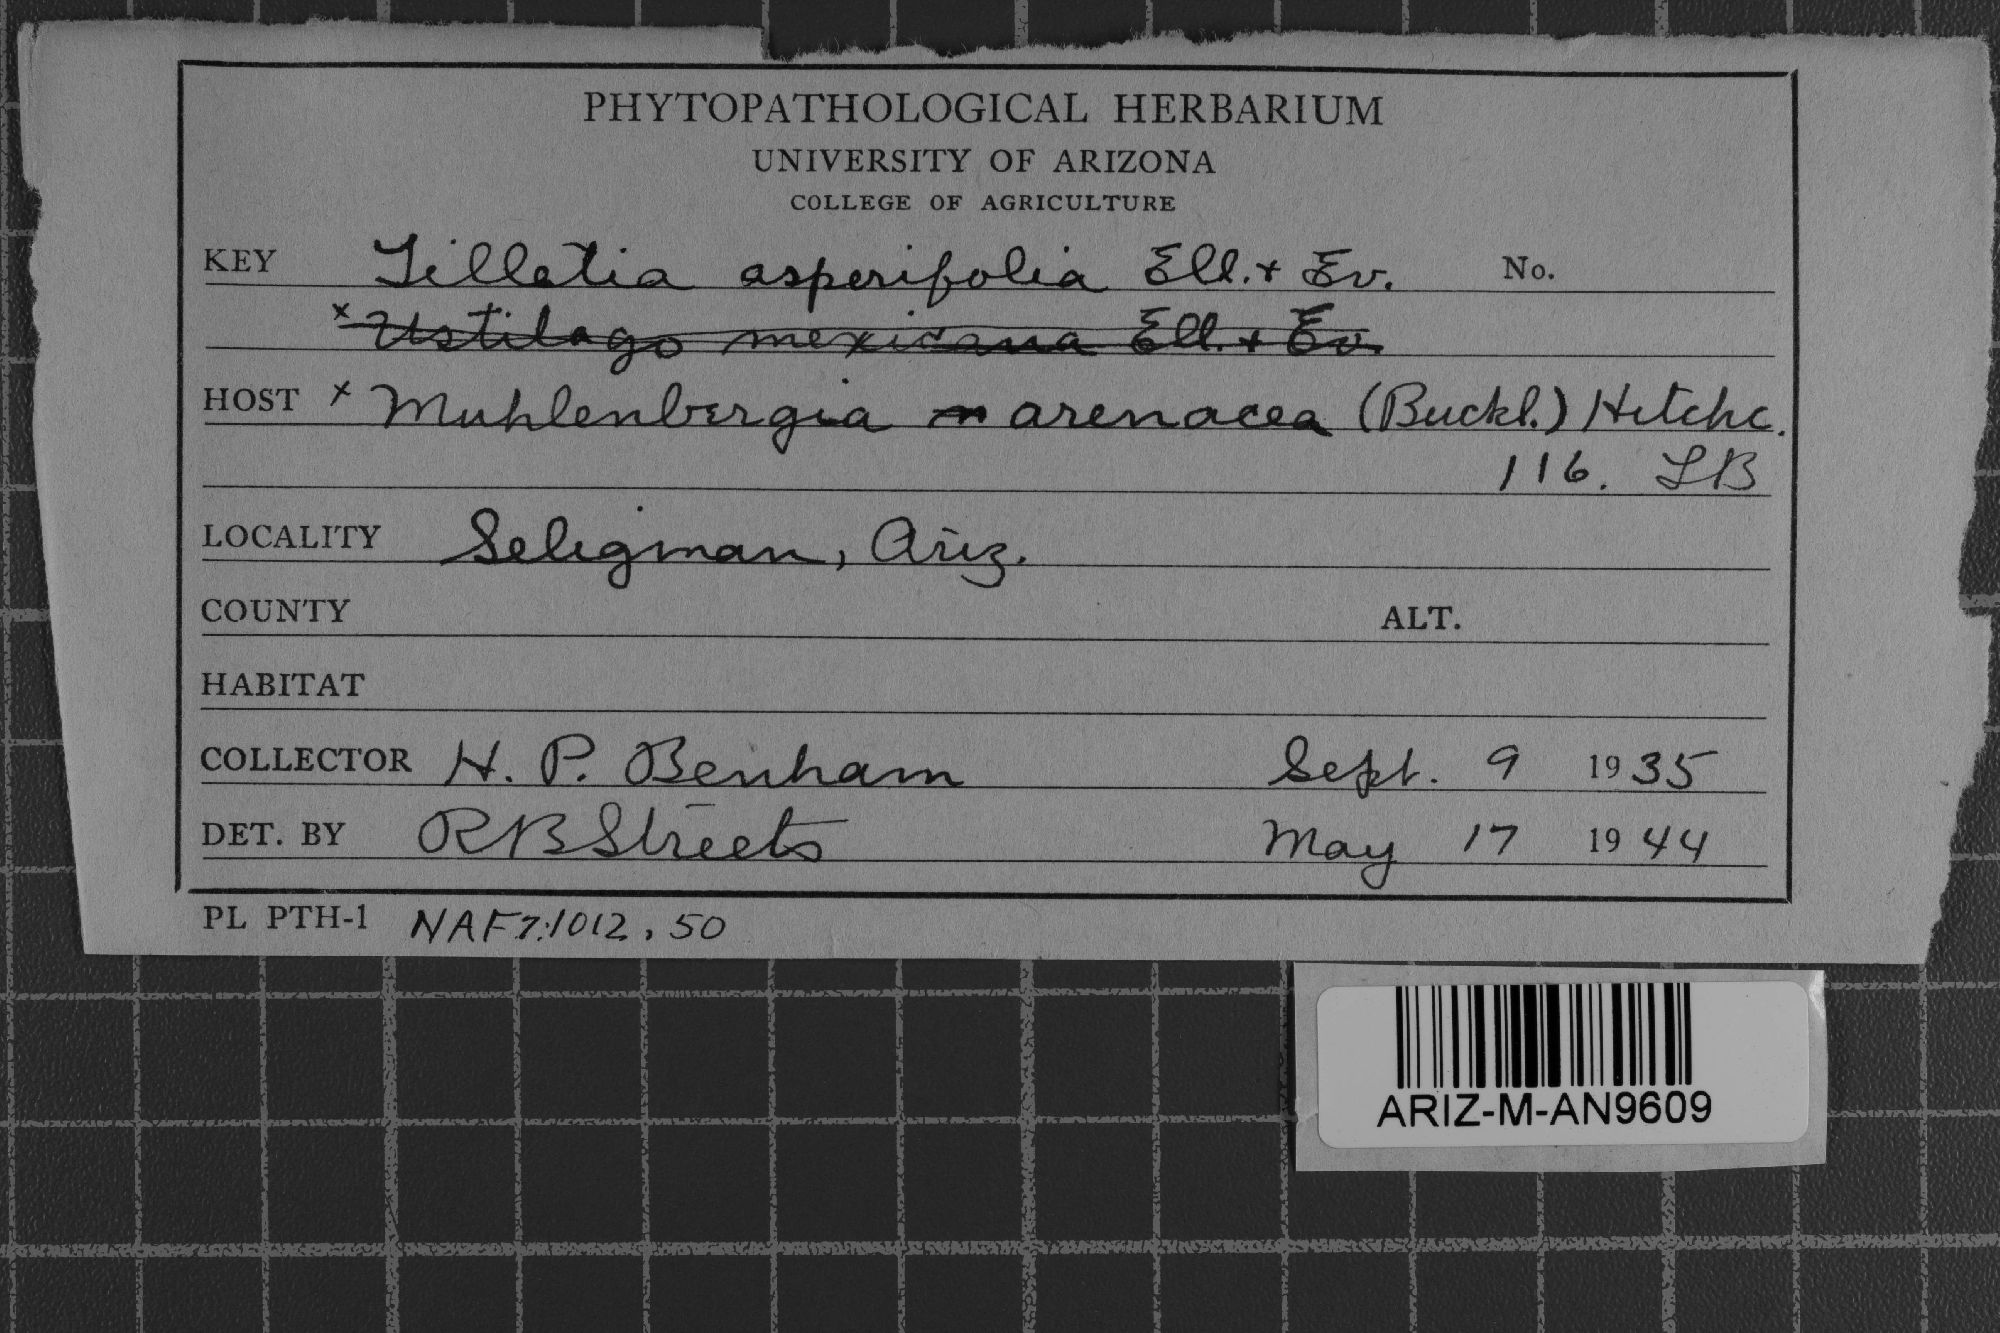 PHYTOPATHOLOGICAL HERBARIUM
UNIVERSITY OF ARIZONA
COLLEGE OF AGRICULTURE
KEY Tilletia asperifolia Ell. + Ev. No.
x Ustilago mexicana Ell. + Ev.
HOST x Muhlenbergia m arenacea (Buckl.) Hitchc.
116. LB
LOCALITY Seligman, Ariz.
COUNTY ALT.
HABITAT
COLLECTOR H. P. Benham Sept. 9 1935
DET. BY RB Streets May 17 1944
PL PTH-1 NAF7:1012, 50
ARIZ-M-AN9609